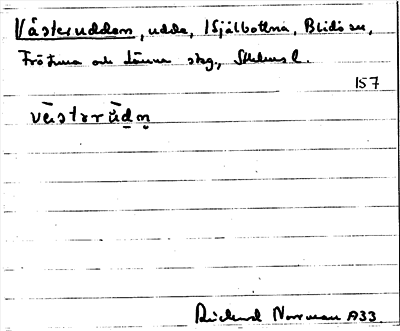 Västerudden, udde, Själbottna, Blidö sn,
Frötuna och Länna skg., Sthlms l.
157
vèstərùdn̥
Rickard Norrman 1933.